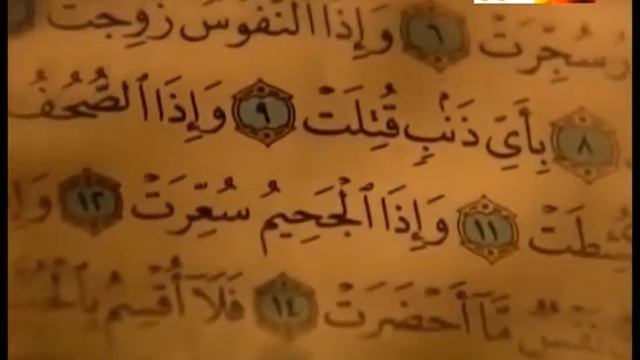 سُجِّرَتْ ٦ وَإِذَا ٱلنُّفُوسُ زُوِّجَتْ
٨ بِأَىِّ ذَنۢبٍ قُتِلَتْ ٩ وَإِذَا ٱلصُّحُفُ
كُشِطَتْ ١١ وَإِذَا ٱلْجَحِيمُ سُعِّرَتْ ١٢
نَفْسٌ مَّآ أَحْضَرَتْ ١٤ فَلَآ أُقْسِمُ